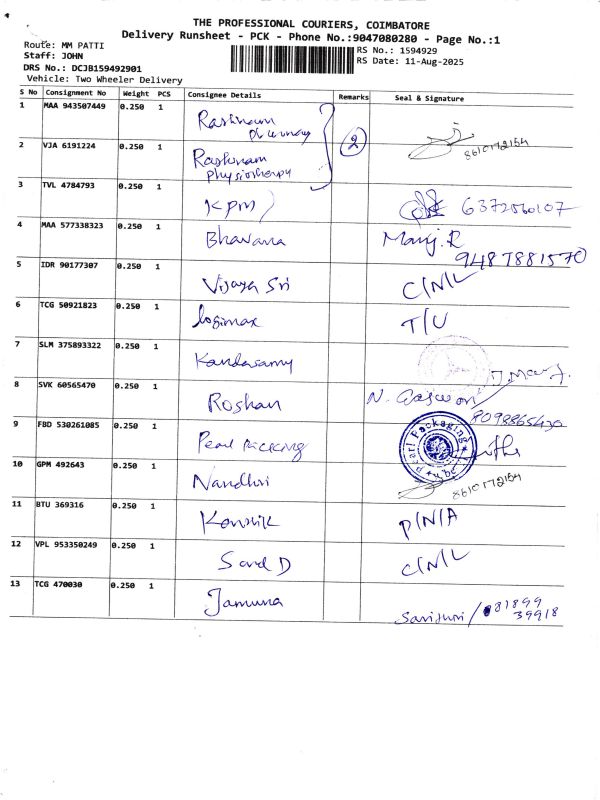 THE PROFESSIONAL COURIERS, COIMBATORE
Delivery Runsheet - PCK - Phone No.:9047080280 - Page No.:1
Route: MM PATTI
Staff: JOHN
DRS No.: DCJB159492901
Vehicle: Two Wheeler Delivery
RS No.: 1594929
RS Date: 11-Aug-2025
S No Consignment No Weight PCS Consignee Details Remarks Seal & Signature
1 MAA 943507449 0.250 1
2 VJA 6191224 0.250 1 physiotherapy 2 8610172154
3 TVL 4784793 0.250 1 KPM 6372560107
4 MAA 577338323 0.250 1 Bhavana Manoj.R
9487881570
5 IDR 90177307 0.250 1 Vijaya Sri C/N/L
6 TCG 50921823 0.250 1 logimax T/U
7 SLM 375893322 0.250 1 Kandasamy
8 SVK 60565470 0.250 1 Roshan N.
8098865430
9 FBD 530261085 0.250 1 Pearl Packing Pearl Packaging
10 GPM 492643 0.250 1 Nandhri 8610172154
11 BTU 369316 0.250 1 Koushik P/N/A
12 VPL 953350249 0.250 1 Sand D C/N/L
13 TCG 470030 0.250 1 Jamuna 81899
39918